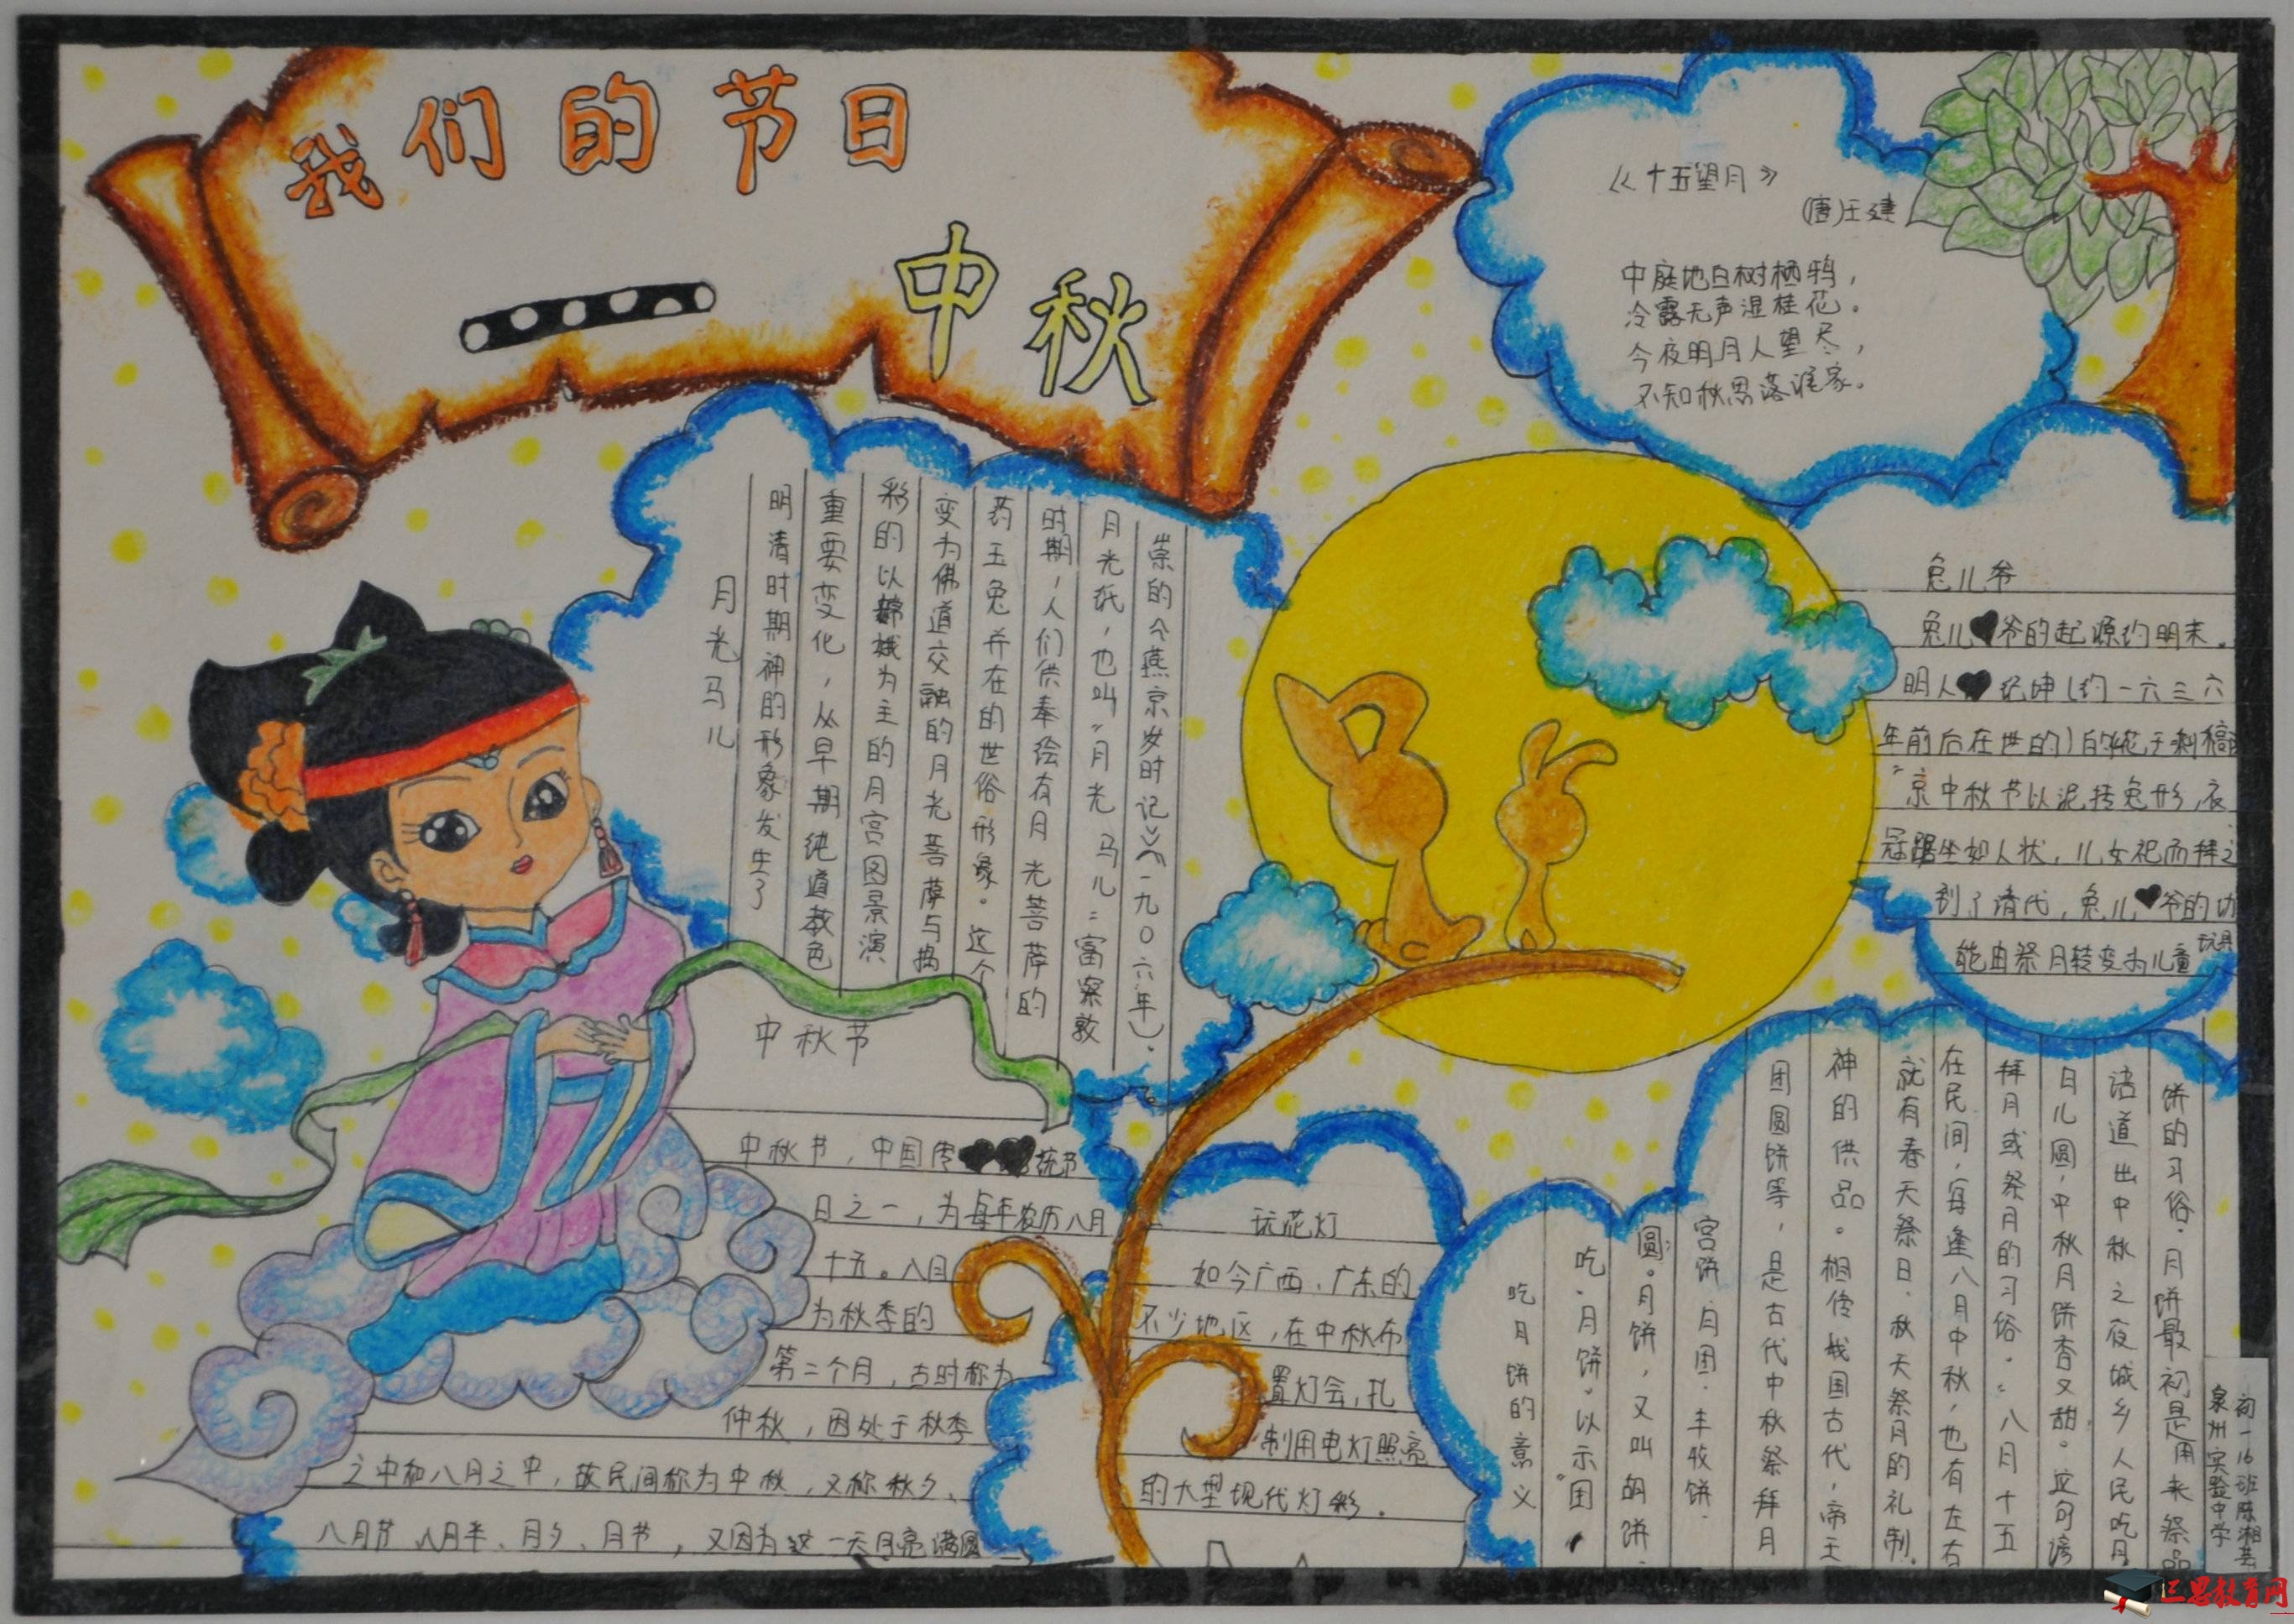 我们的节日
中秋
《十五望月》
(唐)王建
中庭地白树栖鸦，
冷露无声湿桂花。
今夜明月人望尽，
不知秋思落谁家。
月光马儿
明清时期神的形象发生了
重要变化，从早期纯道教色
彩的以嫦娥为主的月宫图景演
变为佛道交融的月光菩萨与捣
药玉兔并在的世俗形象。这个
时期，人们供奉绘有月光菩萨的
月光纸，也叫“月光马儿”富察敦
崇的《燕京岁时记》（一九〇六年）。
兔儿爷
兔儿爷的起源约明末。
明人纪坤（约一六三六
年前后在世的）的《花王剩稿
“京中秋节以泥抟兔形，衣
冠踞坐如人状，儿女祀而拜之
到了清代，兔儿爷的功
能由祭月转变为儿童玩具
中秋节
中秋节，中国传统节
日之一，为每年农历八月
十五。八月
为秋季的
第二个月，古时称为
仲秋，因处于秋季
之中和八月之中，故民间称为中秋，又称秋夕、
八月节、八月半、月夕、月节，又因为这一天月亮满圆
玩花灯
如今广西、广东的
不少地区，在中秋布
置灯会，扎
制用电灯照亮
的大型现代灯彩。
吃月饼的意义
吃“月饼”以示“团
圆”。月饼，又叫胡饼、
宫饼、月团、丰收饼、
团圆饼等，是古代中秋祭拜月
神的供品。相传我国古代，帝王
就有春天祭日、秋天祭月的礼制。
在民间，每逢八月中秋，也有左右
拜月或祭月的习俗。“八月十五
月儿圆，中秋月饼香又甜”。这句谚
语道出中秋之夜城乡人民吃月
饼的习俗。月饼最初是用来祭品
泉州实验中学
初一16班陈湘芸
三思教育网